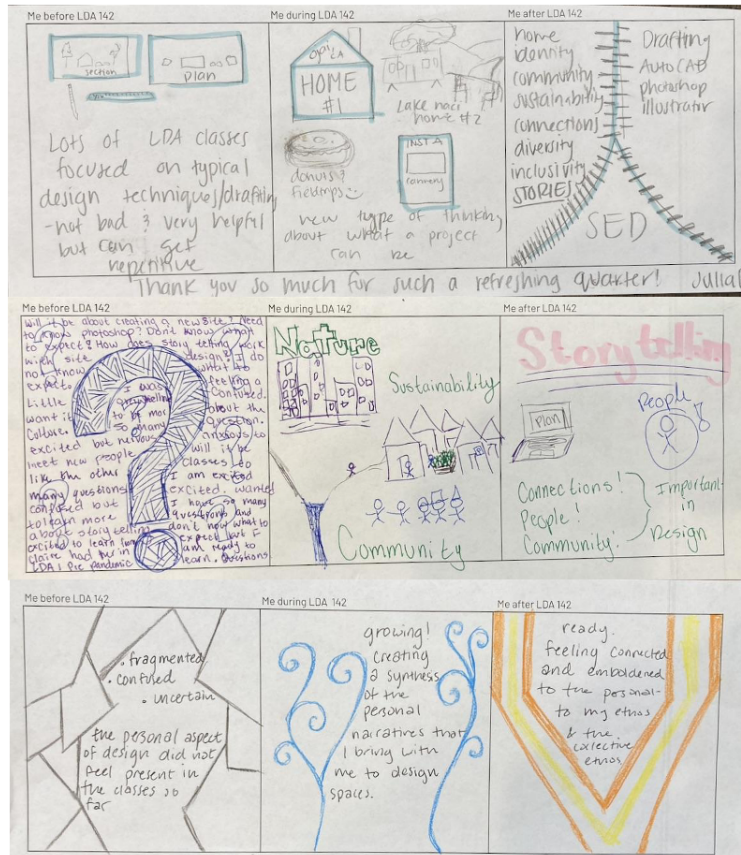 Me before LDA 142
section
plan
Lots of LDA classes
focused on typical
design techniques/drafting
-not bad & very helpful
but can get
repetitive
Me during LDA 142
HOME
#1
Lake naci
home #2
donuts &
fieldtrips
INSTA
new type of thinking
about what a project
can be
Me after LDA 142
home
identity
community
sustainability
connections
diversity
inclusivity
STORIES
Drafting
AUTOCAD
photoshop
illustrator
SED
Thank you so much for such a refreshing quarter!
Me before LDA 142
will it be about creating a new site? Need
to know photoshop? Don't know what
to expect? How does story telling work
with site design? I do
not know what to
expect. feeling a
Little confused.
want it about the
Culture. question.
excited but nervous anxious to
meet new people will it be
like the other classes do
many questions I am excited
confused but excited. wanted
to learn more I have so many
about story telling questions and
excited to learn don't now what to
claire had put in expect but I
LDA 1 Pre Pandemic am ready to
learn. Questions
Me during LDA 142
Nature
Sustainability
Community
Me after LDA 142
Storytelling
Plan
People
Connections!
People!
Community.
Important
in
Design
Me before LDA 142
• fragmented
• confused
• uncertain
the personal aspect
of design did not
feel present in
the classes so
far
Me during LDA 142
growing!
creating
a synthesis
of the
personal
narratives that
I bring with
me to design
spaces.
Me after LDA 142
ready.
feeling connected
and emboldened
to the personal-
to my ethos
& the
collective
ethos